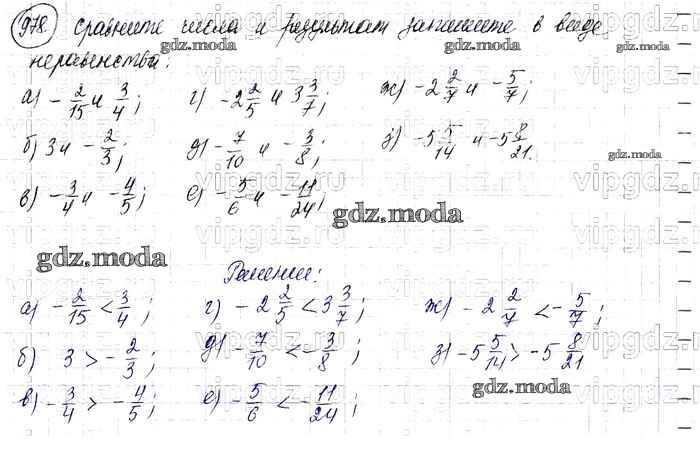 978. Сравните числа и результат запишите в виде
неравенства:
а) -2/15 и 3/4; г) -2 2/5 и 3 3/7; ж) -2 2/7 и -5/7;
б) 3 и -2/3; д) -7/10 и -3/8; з) -5 5/14 и -5 8/21.
в) -3/4 и -4/5; е) -5/6 и -11/24;
gdz.moda
gdz.moda
gdz.moda
gdz.moda
Решение:
а) -2/15 < 3/4; г) -2 2/5 < 3 3/7; ж) -2 2/7 < -5/7;
б) 3 > -2/3; д) -7/10 < -3/8; з) -5 5/14 > -5 8/21
в) -3/4 > -4/5; е) -5/6 < -11/24;
gdz.moda
vipgdz.ru